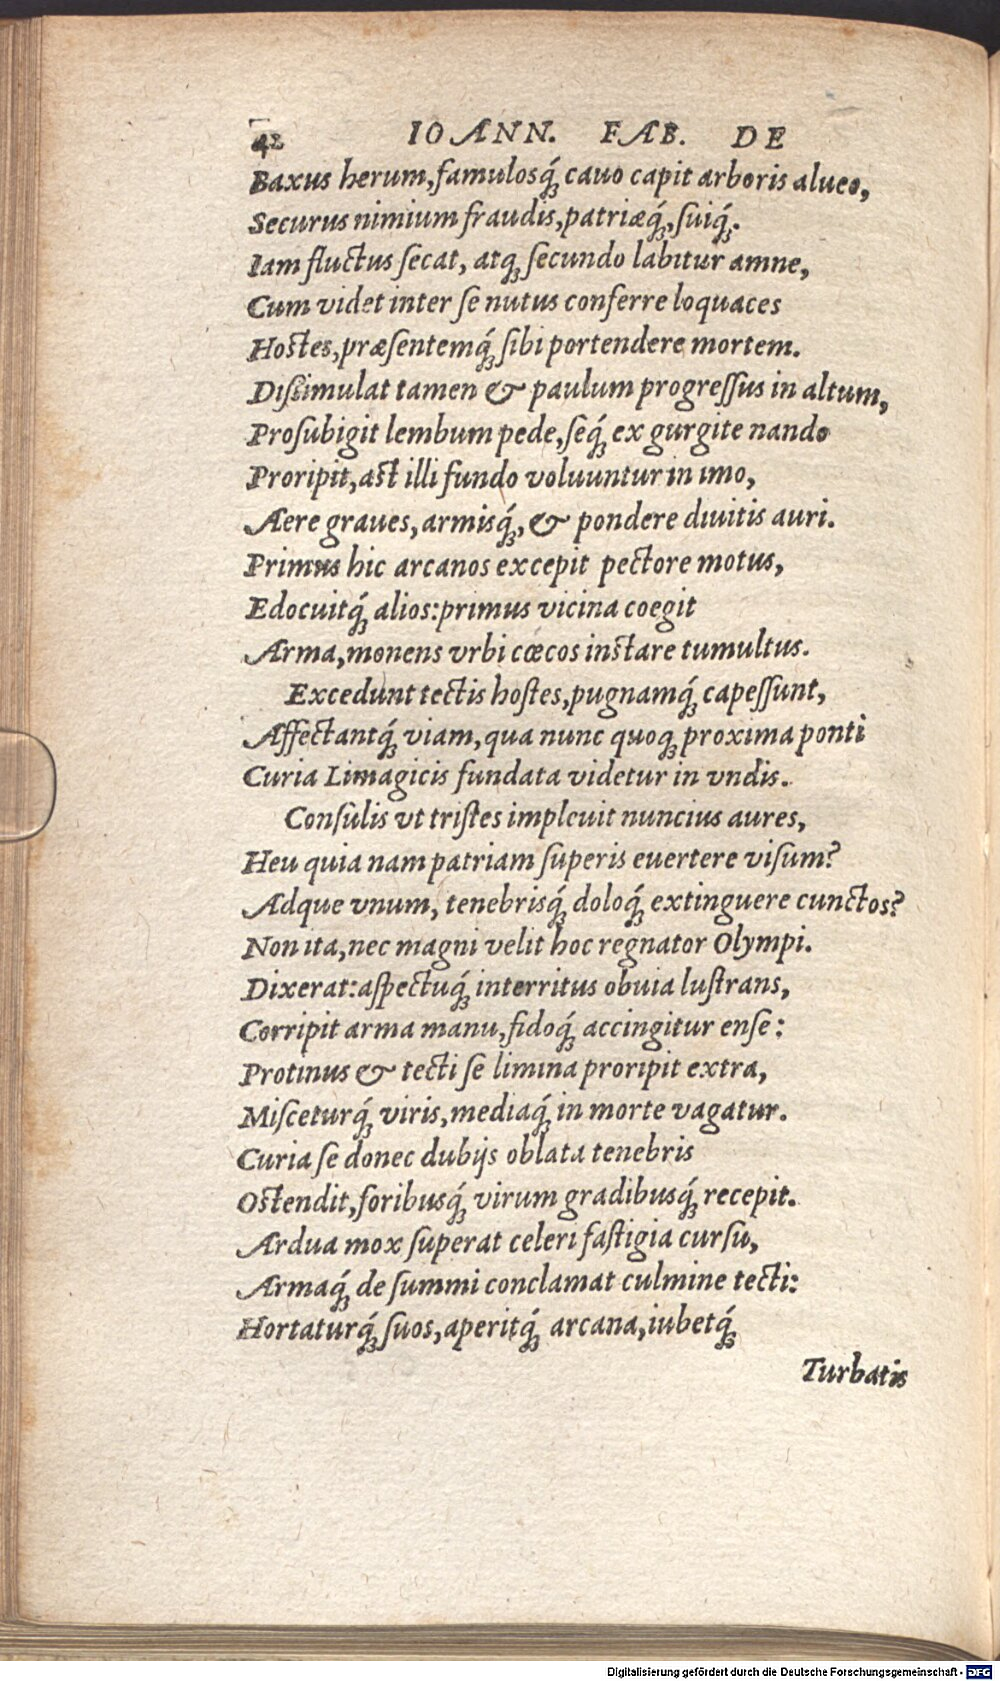 42 IOANN. FAB. DE
Baxus herum, famulosq́; cauo capit arboris alueo,
Securus nimium fraudis, patriæq́;, suiq́;.
Iam fluctus secat, atq; secundo labitur amne,
Cum videt inter se nutus conferre loquaces
Hostes, præsentemq́; sibi portendere mortem.
Dissimulat tamen & paulum progressus in altum,
Prosubigit lembum pede, seq́; ex gurgite nando
Proripit, ast illi fundo voluuntur in imo,
Aere graues, armisq́;, & pondere diuitis auri.
Primus hic arcanos excepit pectore motus,
Edocuitq́; alios: primus vicina coegit
Arma, monens vrbi cœcos instare tumultus.
Excedunt tectis hostes, pugnamq́; capessunt,
Affectantq́; viam, qua nunc quoq; proxima ponti
Curia Limagicis fundata videtur in vndis.
Consulis vt tristes impleuit nuncius aures,
Heu quia nam patriam superis euertere visum?
Adque vnum, tenebrisq́; doloq́; extinguere cunctos?
Non ita, nec magni velit hoc regnator Olympi.
Dixerat: aspectuq́; interritus obuia lustrans,
Corripit arma manu, fidoq́; accingitur ense:
Protinus & tecti se limina proripit extra,
Misceturq́; viris, mediaq́; in morte vagatur.
Curia se donec dubijs oblata tenebris
Ostendit, foribusq́; virum gradibusq́; recepit.
Ardua mox superat celeri fastigia cursu,
Armaq́; de summi conclamat culmine tecti:
Hortaturq́; suos, aperitq́; arcana, iubetq́;
Turbatis
Digitalisierung gefördert durch die Deutsche Forschungsgemeinschaft - DFG